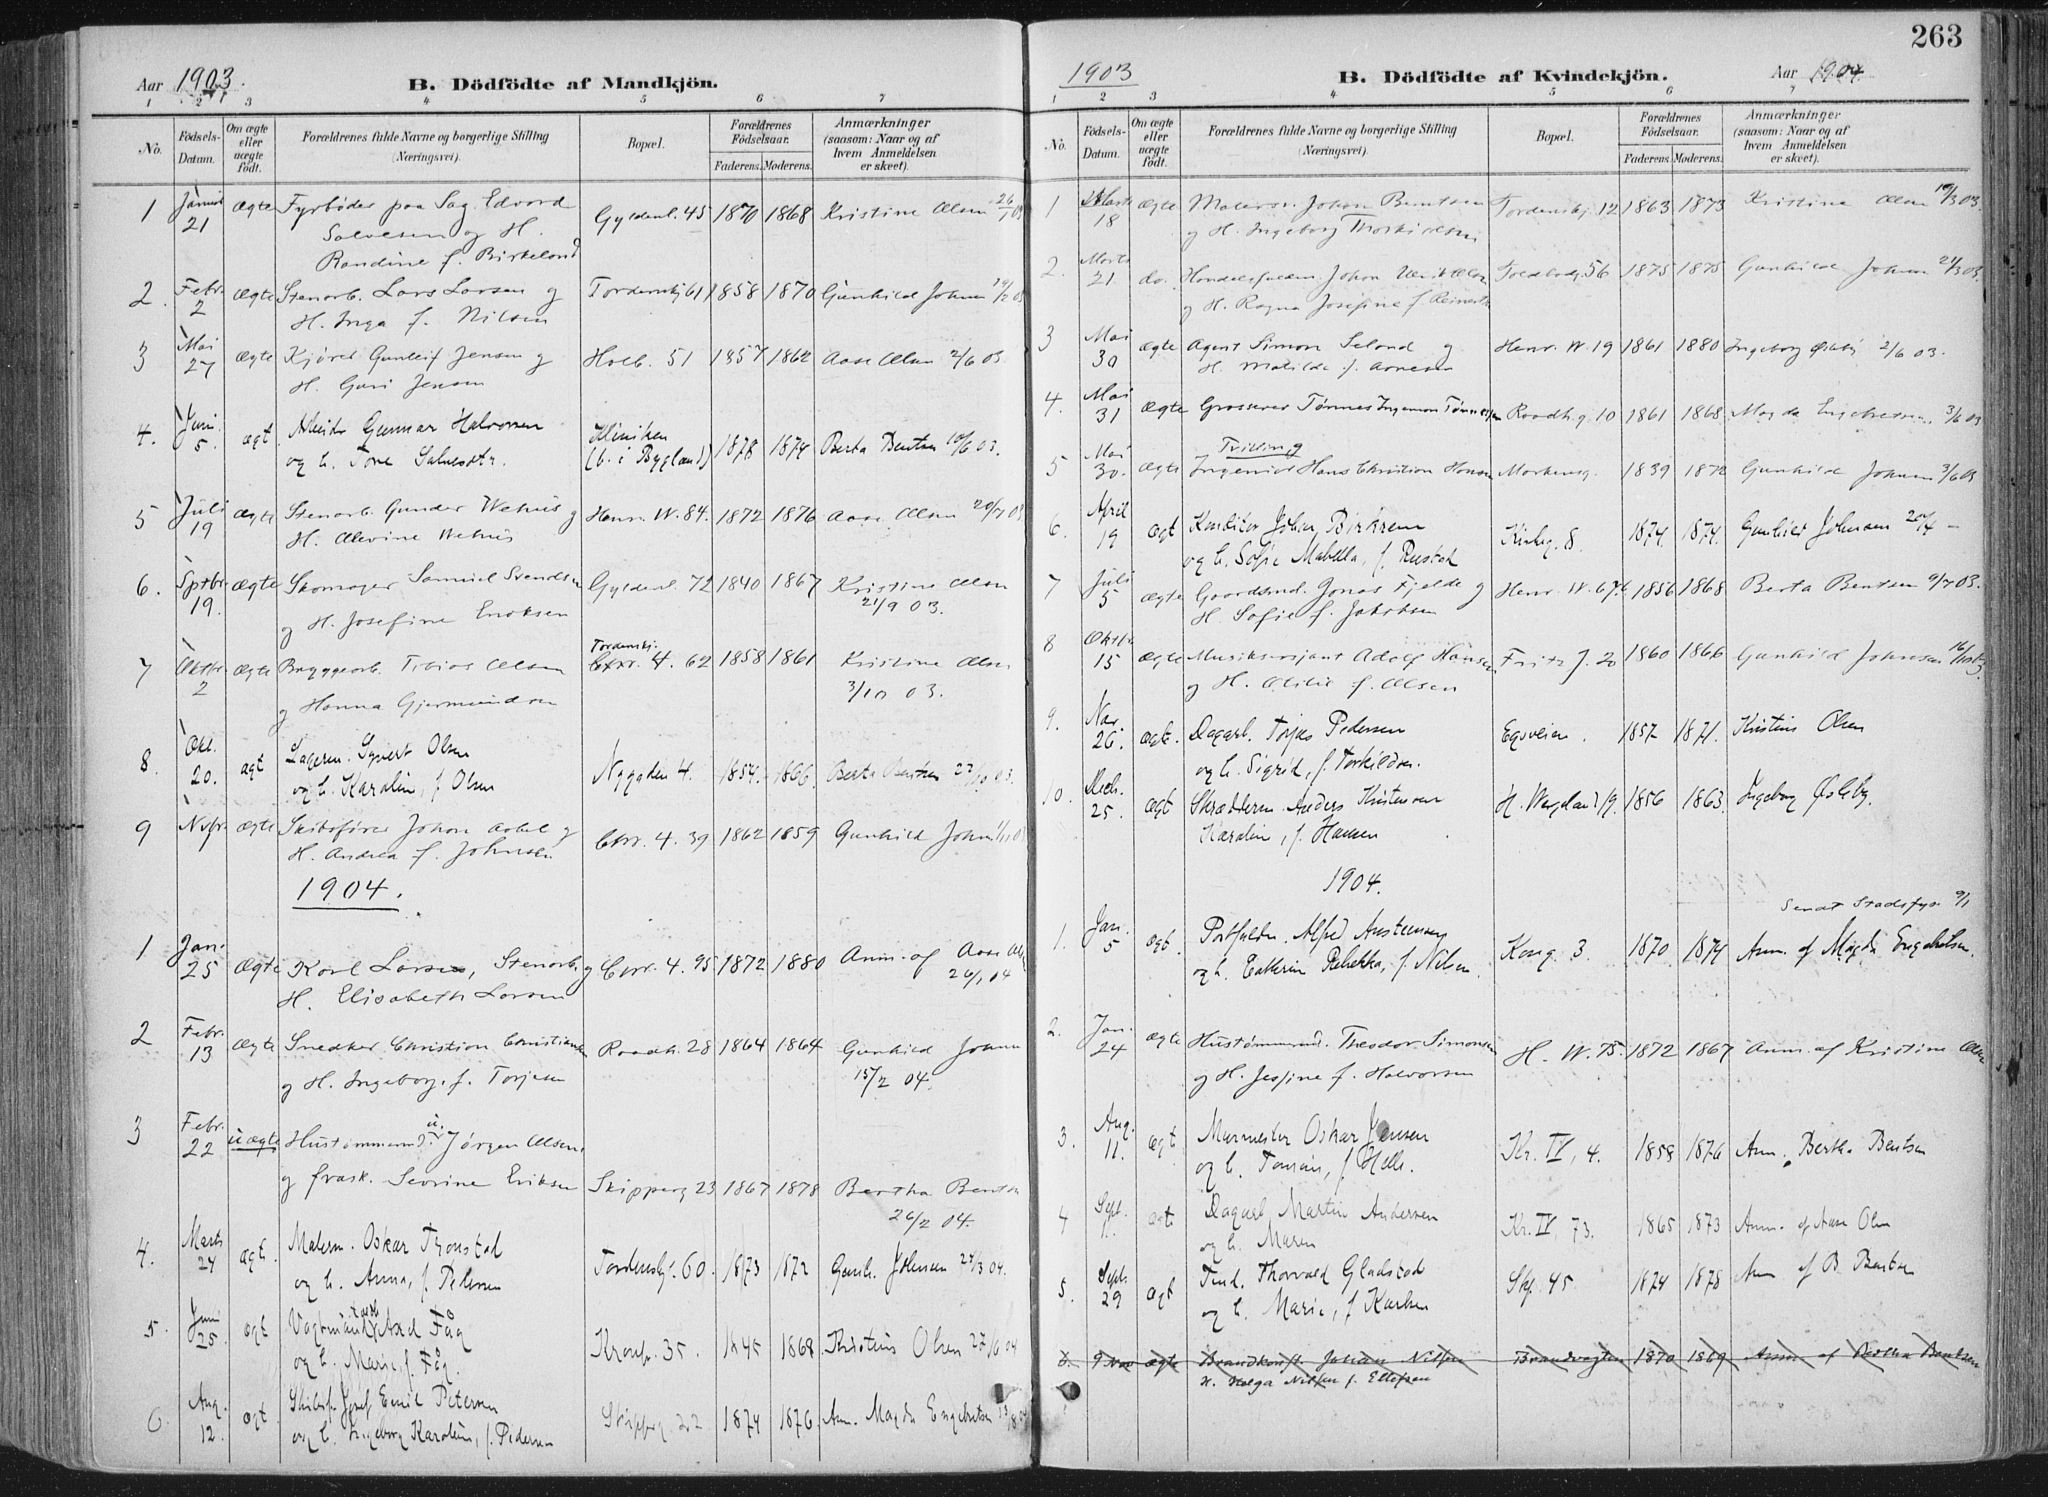 263
Aar 1903.
B. Dödfödte af Mandkjön.
1 2 3 4 5 6 7
No.
Fødsels-Datum.
Om ægte eller uægte født.
Forældrenes fulde Navne og borgerlige Stilling (Næringsvei).
Bopæl.
Forældrenes Fødselsaar.
Faderens. Moderens.
Anmærkninger (saasom: Naar og af hvem Anmeldelsen er skeet).
1 Januar 21 Ægte Fyrbøder paa Sag. Edvard Gyldenl. 45 1870 1868 Kristine Olsen 26/1 03
Salvesen og H.
Randine f. Birkeland
2. Febr. 2 Ægte Stenarb. Lars Larsen og Tordenskj 61 1858 1870 Gunhild Johnsen
H. Inga f. Nilsen
3 Mai 27 Ægte Kjørel Gunleif Jensen og Holb. 51 1857 1862 Aase Olsen 2/6 03.
H. Guri Jensen
4. Juni 5. ægt Arbeider Gunnar Halvorsen Kliniken 1878 1874 Berta Bentsen 10/6 03.
og h. Tore Salvesdtr. (b. i Bygland)
5 Juli 19 Ægte Stenarb. Gunder Wehus og Henr. W. 84. 1872 1876 Aase Olsen 20/7 03
H. Olevine Wehus
6. Sptbr. 19. Ægte Skomager Samuel Svendsen Gyldenl. 72 1840 1867 Kristine Olsen
og H. Josefine Enoksen 21/9 03.
Tordenskj.
7 Oktbr. 2 Ægte Bryggearb. Tobias Olsen 4. 62 1858 1861 Kristine Olsen
og Hanna Gjermundsen 3/10 03.
8. Okt. 20. ægt Lagerm. Syvert Olsen Nygaden 4. 1854. 1866. Berta Bentsen
og h. Karolin, f. Olsen
9 Nvbr. Ægte Skibsfører Johan Aabel og 4. 39 1862 1859 Gunhild Johnsen
H. Andrea f. Johnsen
1904.
1 Jan. 25 Ægte Karl Larsen, Stenarb. og 4. 95 1872 1880 Anm. af Aase Olsen
H. Elisabeth Larsen 26/1 04
2 Febr. 13 Ægte Snedker Christian Christiansen Raadh. 28 1864 1864 Gunhild Johnsen
og H. Ingeborg f. Torjesen 15/2 04.
3 Febr. 22 uægte Hustømmermd. u. Jørgen Olsen,
og frask. Severine Eriksen Skipperg 23 1867 1878 Bertha Bentsen
26/2 04.
4. Marts 24 ægt. Malerm. Oskar Tjonstad Tordenskj. 60. 1873 1872 Gunh. Johnsen 24/3 04.
og h. Anna, f. Pedersen
5. Juni 25. ægt Vagtmand Axel Fåg Kronpr. 35. 1845 1868 Kristine Olsen 27/6 04
og h. Marie, f. Fåg.
6. Aug. 12. ægt Josef Emil Petersen Skipperg 22 1874 1876. Anm. Magda Engebretsen
og h. Ingeborg Karoline, f. Pedersen
1903
B. Dödfödte af Kvindekjön.
Aar 1904
1 2 3 4 5 6 7
No.
Fødsels-Datum.
Om ægte eller uægte født.
Forældrenes fulde Navne og borgerlige Stilling (Næringsvei).
Bopæl.
Forældrenes Fødselsaar.
Faderens. Moderens.
Anmærkninger (saasom: Naar og af hvem Anmeldelsen er skeet).
1 Marts 18 Ægte Malersv. Johan Berntsen Tordenskj. 12 1863 1873 Kristine Olsen 19/3 03.
og H. Ingeborg Thorkildsen
2. Marts 21 do. Handelsfuldm. Johan Toldbodg. 56 1875 1875 Gunhild Johnsen 24/3 03.
og H. Ragna Josefine f.
3 Mai 30 Ægte Agent Simon Seland og Henr. W. 19 1861 1880 Ingeborg Øsleby 2/6 03.
H. Matilde f. Arnesen
4. Mai 31 Ægte Grosserer Tønnes Ingeman Tønnesen Raadh.g. 10 1861 1868 Magda Engebretsen 3/6 03
Tvilling
5 Mai 30. Ægte Ingeniør Hans Christian Hansen Markensg. 1839 1872 Gunhild Johnsen 3/6 03
6. April 19 ægt Konditor Johan Birkrem Kirkeg. 8. 1874. 1874. Gunhild Johnsen 20/4 —
og h. Sofie Mabella, f. Rustad
7 Juli 5 Ægte Gaardsmd. Jonas Fjelde og Henr. W. 67. 1856 1868 Berta Bentsen 9/7 03.
H. Sofie f. Jakobsen
8 Oktbr. 15 Ægte Musiksersjant Adolf Hansen Fritz J. 20 1860 1866 Gunhild Johnsen
og H. Otilie f. Olsen
9. Nov. 26. ægte. Dagarb. Torjus Pedersen Egsveien. 1857 1871. Kristine Olsen
og h. Sigrid, f. Torkildsen.
10. Decb. 25. ægt Skrædderm. Anders Kristensen H. Wergeland 19. 1856 1863. Ingeborg Øsleby.
Karolin, f. Hansen
1904.
Sendt Stadsfys. 9/1
1. Jan. 5 ægt. Postfuldm. Alfred Austensen Kong. 3. 1870. 1874 Anm. af Magda Engebretsen.
og h. Cathrin Rebekka, f. Nilsen.
2. Jan. 24 Ægte Hustømmermd. Theodor Simonsen H. W. 75. 1872 1867 Anm. af Kristine Olsen
og H. Jesfine f. Halvorsen
3. Aug. 11. ægt Murmester Oskar Jensen Kr. IV, 4. 1858 1876 Anm. Bertha Bentsen
og h. Tomine, f. Helle.
4 Sept. 11. ægt. Dagarb. Martin Andersen Kr. IV, 73. 1865 1873 Anm. af Aase Olsen
og h. Maren
5. Sept. 29 ægt Tind. Thorvald Gladstad Skp. 45 1874 1878 Anm af B. Bentsen
og h. Marie, f. Karlsen
6. 9 Nov ægte Brandkonst. Johan Nilsen Brandvagten 1870 1869 Anm. af Bertha Bentsen
H. Helga Nilsen f. Ellefsen